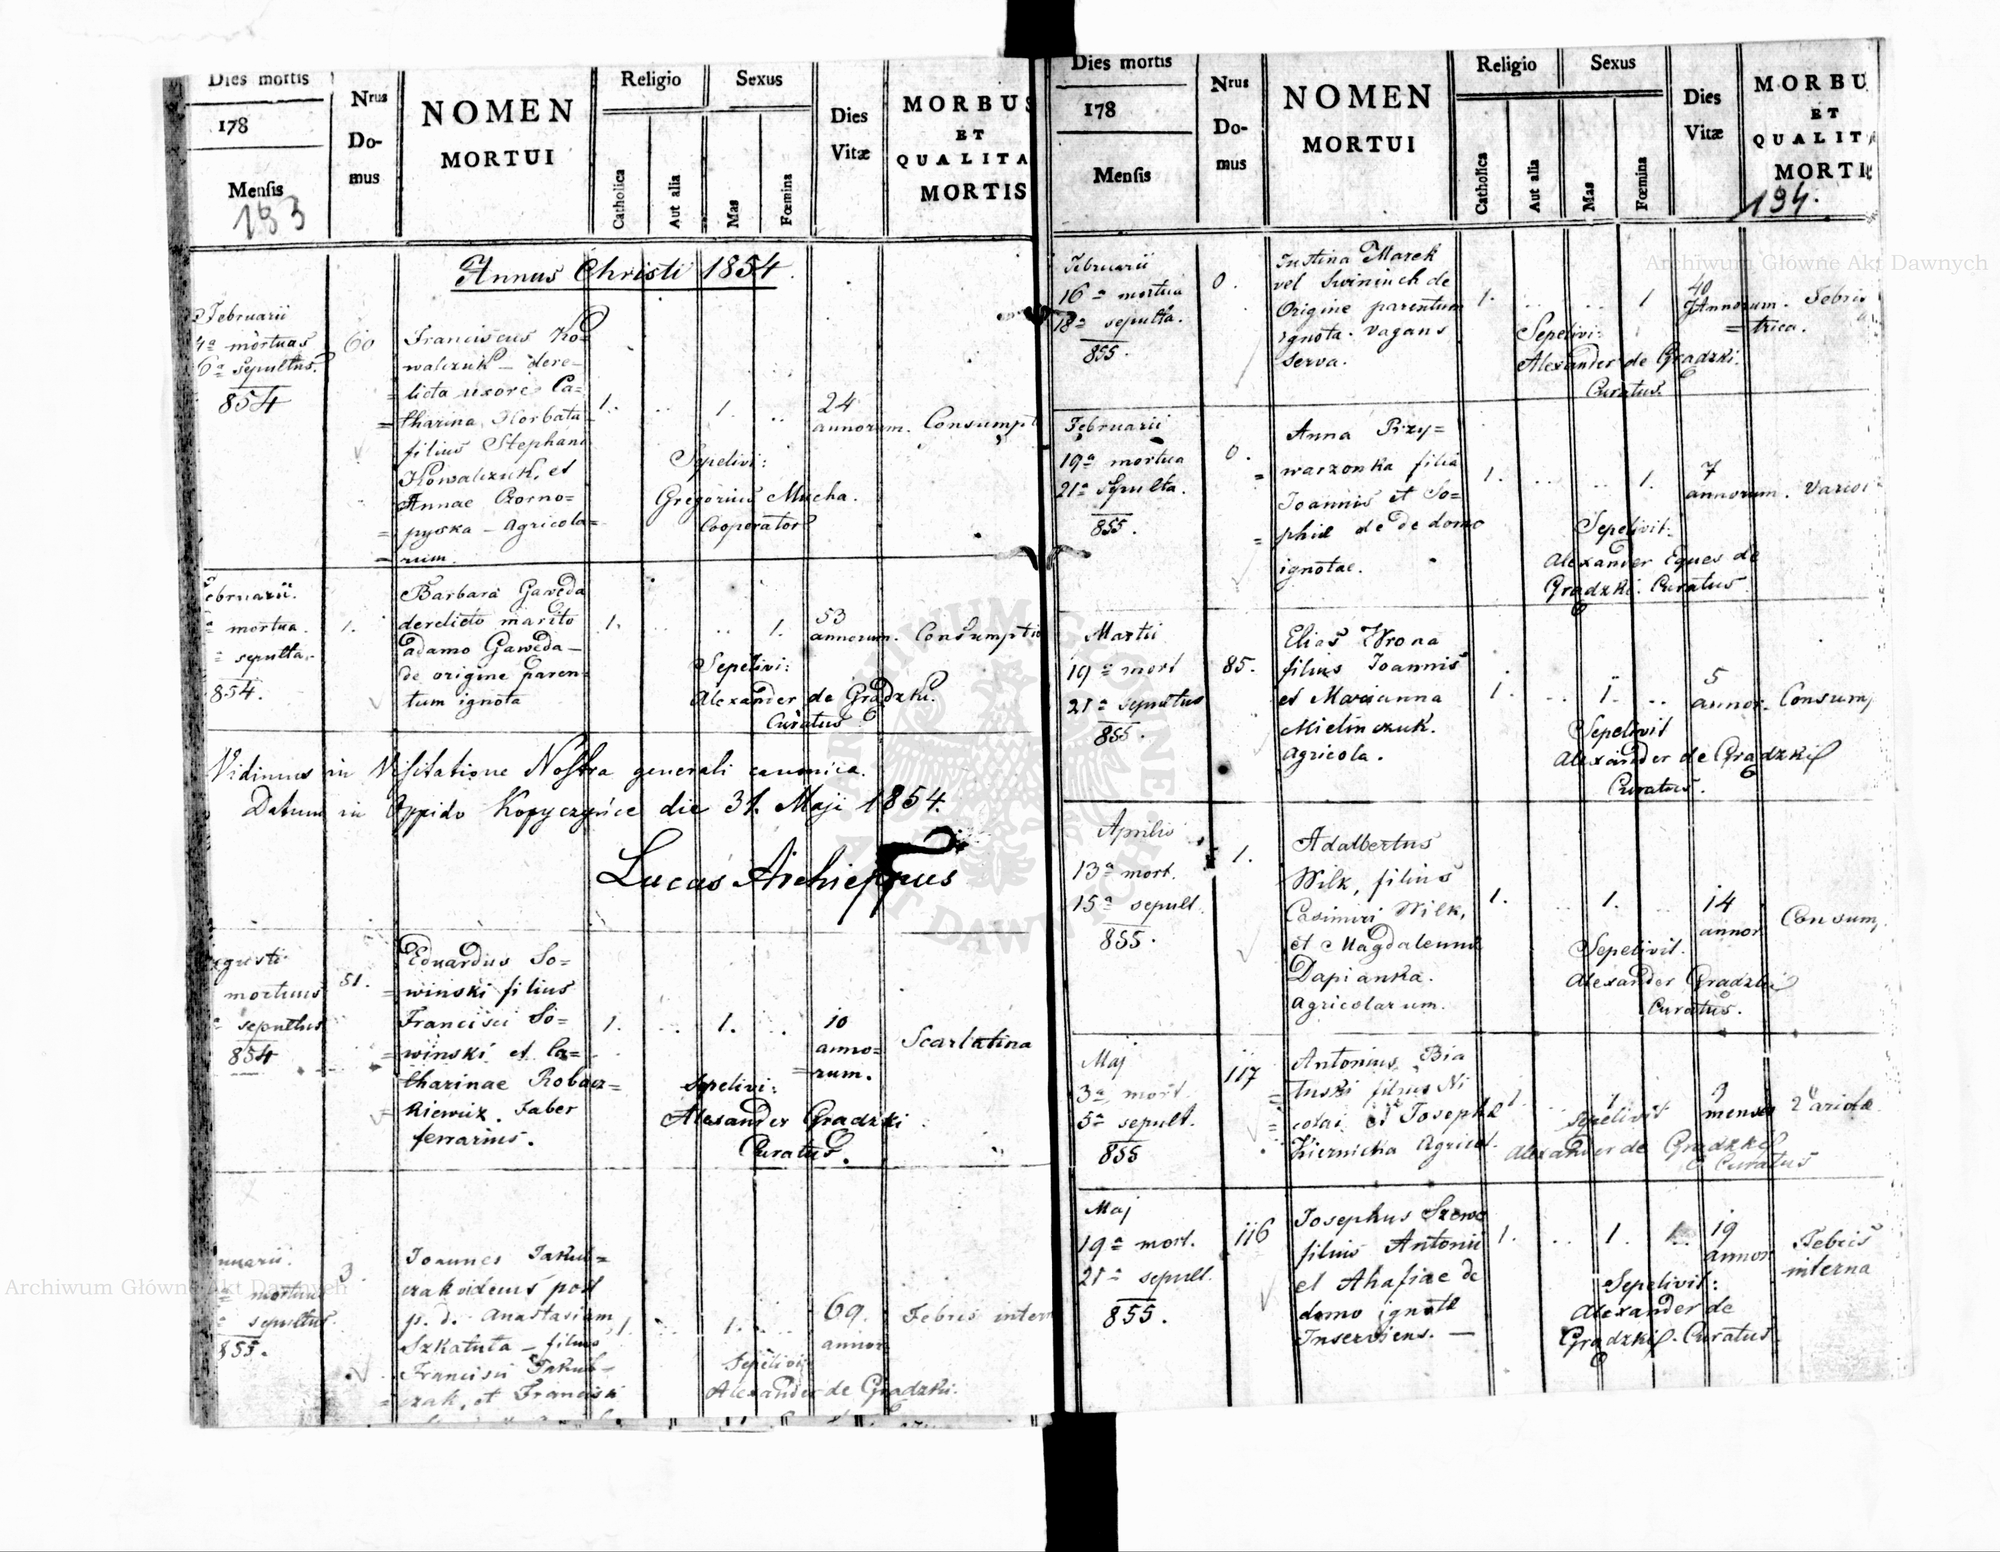 Dies mortis
178
Mensis
183
Nrus
Do-
mus
NOMEN
MORTUI
Religio
Catholica
Aut alia
Sexus
Mas
Fœmina
Dies
Vitæ
MORBUS
ET
QUALITA
MORTIS
Annus Christi 1854.
Februarii
4a mortuus
6a sepultus.
854
60
Franciscus Ko=
walczuk – dere=
licta uxore Ca=
=tharina Horbata
filius Stephani
Kowalczuk, et
Annae Czorno=
=pyska – Agricola=
=rum.
1. .. 1. ..
24
annorum.
Consumpt
Sepelivi:
Gregorius Mucha.
Cooperator
ebruarii.
mortua.
sepulta.
854.
1.
Barbara Gawęda
derelicto marito
Adamo Gawęda –
de origine paren=
tum ignota
1. .. .. 1.
53
annorum.
Consumptio
Sepelivi:
Alexander de Gradzki.
Curatus
Vidimus in Visitatione Nostra generali canonica.
Datum in Oppido Kopyczyńce die 31. Maji 1854.
Lucas Archieppus
gusti
mortuus
sepultus
854
51.
Eduardus So=
=winski filius
Francisci So=
=winski et Ca=
tharinae Robacz=
kiewicz. Faber
ferrarius.
1. .. 1. ..
10
anno=
=rum.
Scarlatina
Sepelivi:
Alexander Gradzki
Curatus.
nuarii.
mortuus
sepultus.
855.
3.
Joannes Jakub=
czak viduus post
p. d. Anastasiam
Szkatuła – filius
Francisci Jakub=
=czak, et Francisca
1. .. 1. ..
69.
annor
Febris intern
Sepelivi
Alexander de Gradzki.
Dies mortis
178
Mensis
Nrus
Do-
mus
NOMEN
MORTUI
Religio
Catholica
Aut alia
Sexus
Mas
Fœmina
Dies
Vitæ
MORBU
ET
QUALIT
MORTI
194.
Februarii
16a mortua
18a sepulta.
855.
0.
Justina Marek
vel Swininch de
Origine parentum
ignota. vagans
serva.
1. .. .. 1
40
Annorum.
Febris
=trica.
Sepelivi:
Alexander de Gradzki.
Curatus.
Februarii
19a mortua
21a sepulta.
855.
0.
Anna Przy=
=waczonka filia
Joannis et So=
=phie de de domo
ignotae.
1. .. .. 1.
7
annorum.
Sepelivit.
Alexander Eques de
Gradzki. Curatus.
Martii
19a mort
21a sepultus
855.
85.
Elias Wrona
filius Joannis
et Marianna
Mielinczuk.
Agricola.
1. .. 1. ..
5
annor.
Consump
Sepelivit
Alexander de Gradzki
Curatus.
Aprilis
13a mort.
15a sepult.
855.
1.
Adalbertus
Wilk, filius
Casimiri Wilk,
et Magdalenna
Dapianka.
Agricolarum.
1. .. 1. ..
14
annor
Consum,
Sepelivit.
Alexander Gradzki
Curatus.
Maj
3a mort.
5a sepult.
855
117
Antonius Bia
=łuski filius Ni
=colai et Josepha
Kiernicka Agricol.
1. .. 1
9
mensis
Variola
Sepelivit
Alexander de Gradzki
Curatus
Maj
19a mort.
21a sepult.
855.
116
Josephus Szewc
filius Antonii
et Ahafiae de
domo ignote
Inserviens. —
1. .. 1. 1.
19
annor
Febris
interna
Sepelivit:
Alexander de
Gradzki. Curatus.
Archiwum Główne Akt Dawnych
Archiwum Główne Akt Dawnych
ARCHIWUM GŁÓWNE AKT DAWNYCH